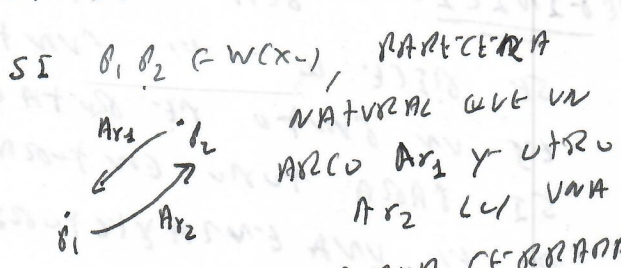 SI P₁ P₂ ∈ W(X-), PARECERIA
NATURAL QUE UN
ARCO Ar₁ y OTRO
Ar₂ UNA
Ar₁
P₂
P₁
Ar₂
CERRADA